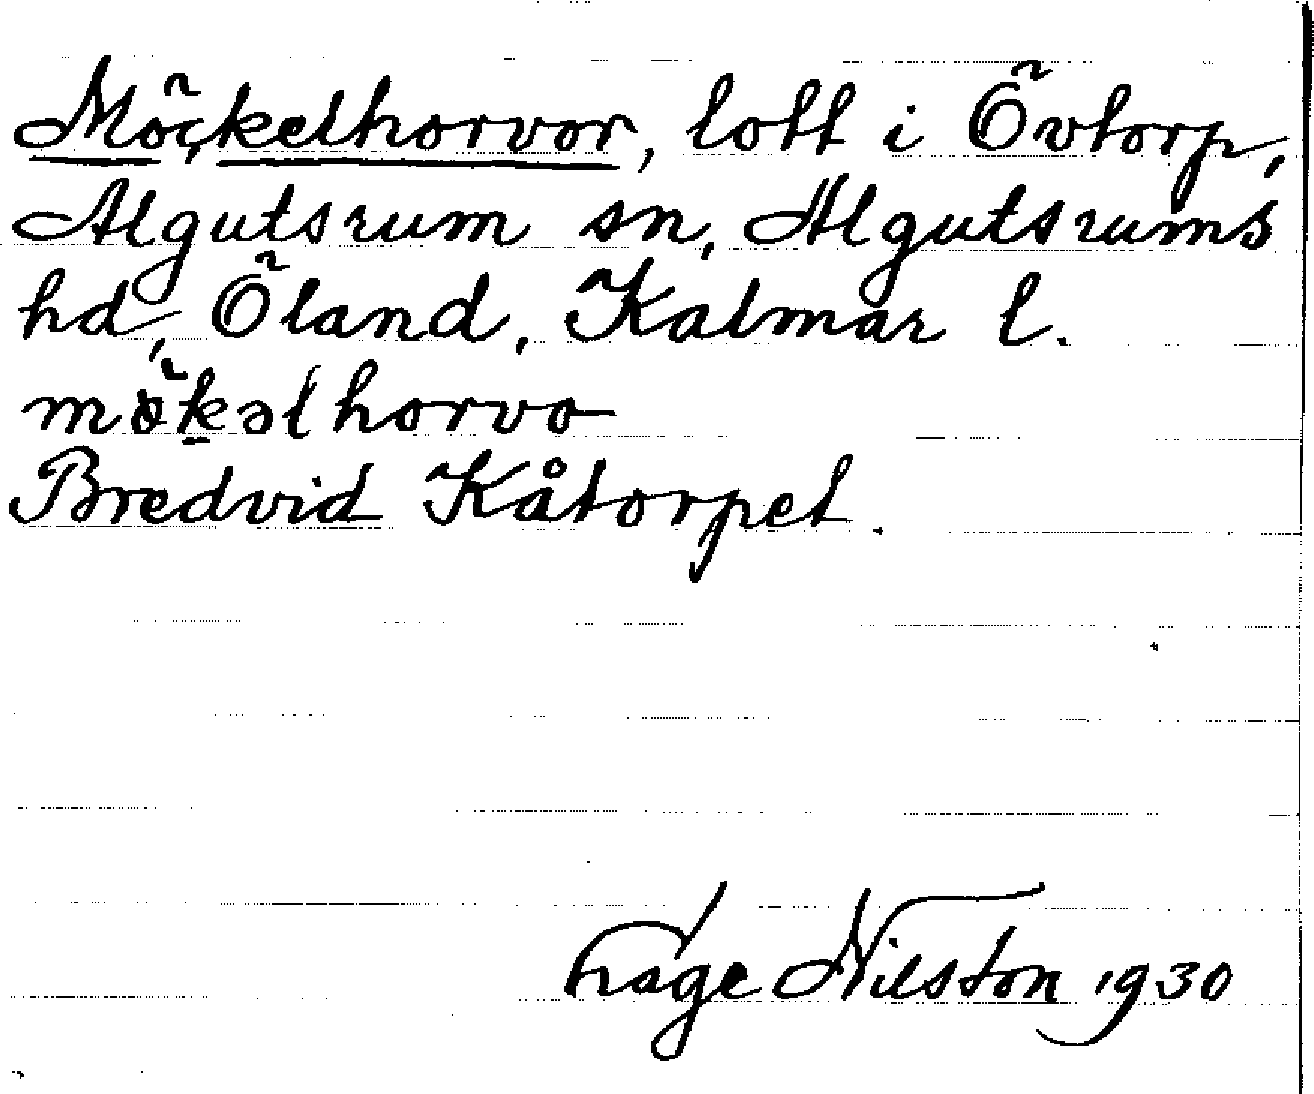 Möckelhorvor, lott i Övtorp,
Algutsrum sn, Algutsrums
hd, Öland, Kalmar l.
mökəlhorvo
Bredvid Kåtorpet.
Tage Nilston 1930